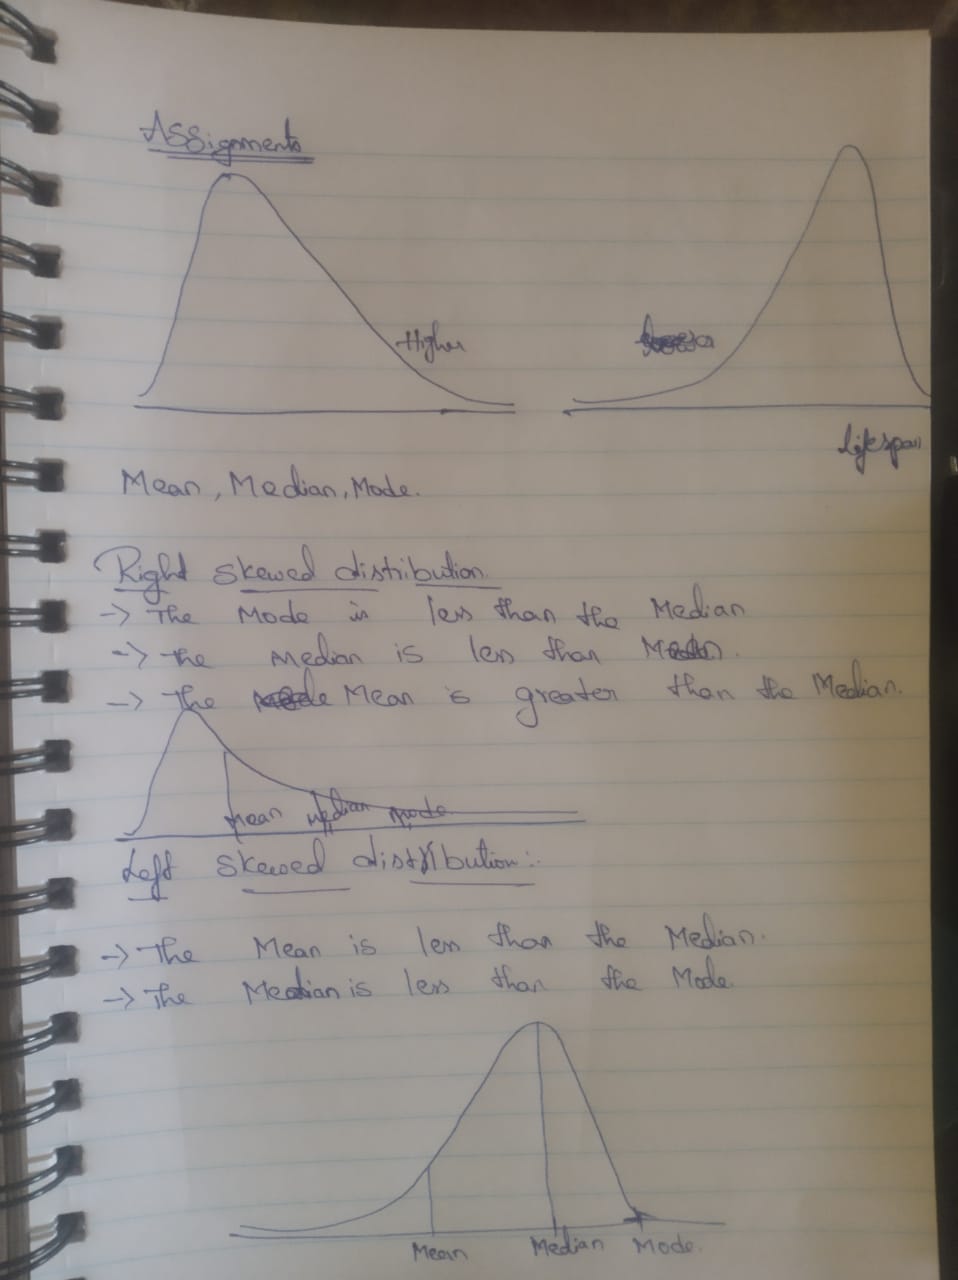 Assignments
Higher
Lifespan
Mean, Median, Mode.
Right skewed distribution.
-> The Mode is less than the Median
-> The Median is less than
-> The Mean is greater than the Median.
Mean Median Mode
Left skewed distribution:
-> The Mean is less than the Median.
-> The Median is less than the Mode.
Mean Median Mode.